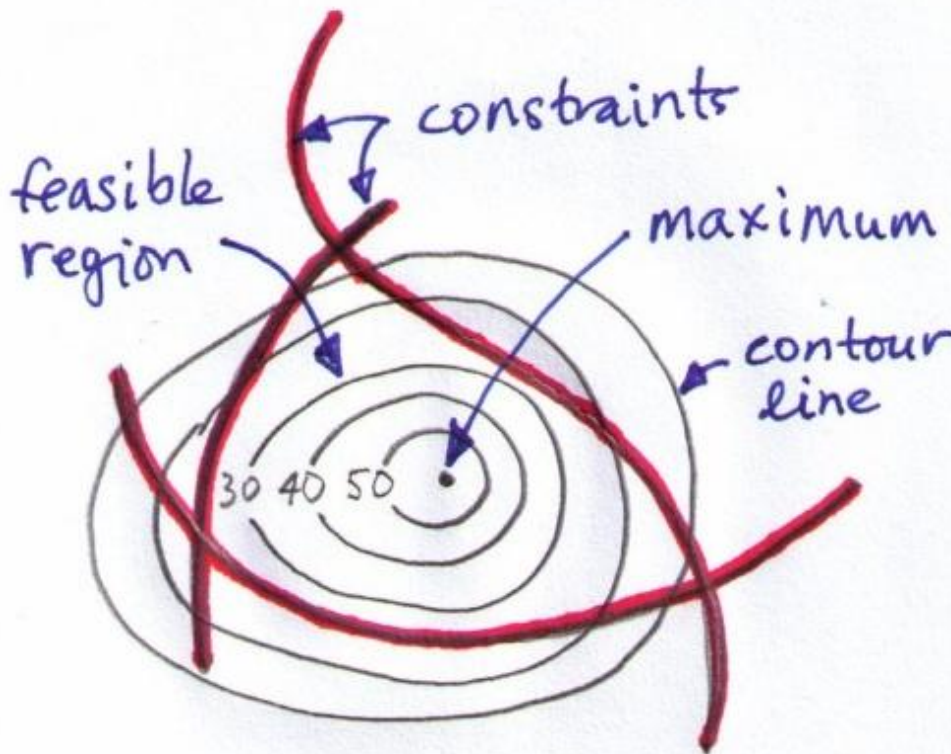 constraints
feasible
region
maximum
contour
line
30 40 50